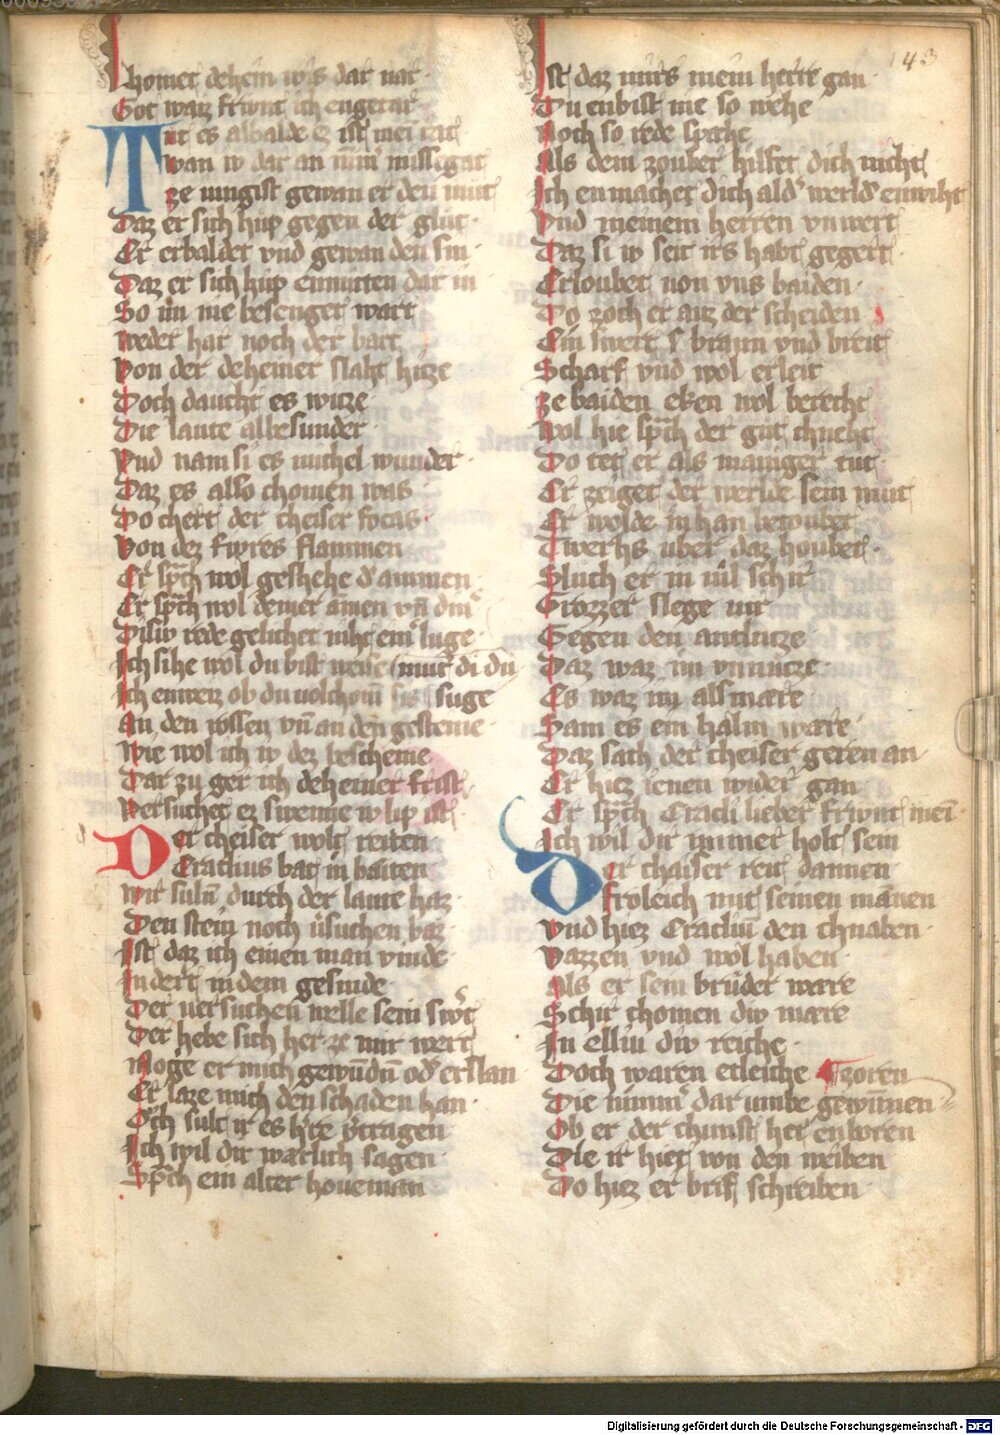 chomet dehein wis dar nar
Got waiz friwnt ich engetar
Tut es albalde ez ist mein rat
wan iv dar an nim missegat
ze iungist gewan er den mut
Daz er sich hup gegen der glut
Er erbaldet vnd gewan den sin
Daz er sich hup enmitten dar in
So im nie besenget wart
weder har noch der bart
Von der deheiner slaht hitze
Doch daucht es witze
Die laute albesunder
Vnd nam si es michel wunder
Daz es also chomen was
Do chert der cheiser focas
Von dez fiwres flammen
Er sprch wol geschehe d ammen
Er sprch wol deiner amen vn din
Disiv rede gelichet niht einr luge
Ich sihe wol du bist weise mutr di du
Ich enweiz ob du volchom sis suge
an den rossen vn an den gesteine
Wie wol ich iv dez bescheine
Dar zu ger ich deheiner frist
Versuchet ez swenne iv lip ist
Der cheiser wolt reiten
Eraclius bat in baiten
wir suln durch der laute haz
Den stein noch versuchen baz
Ist daz ich einen man vinde
Indert in dem gesinde
Der versuchen welle sein swert
Der hebe sich her ze mir wert
Moge er mich gewundn od erslan
Er laze mich den schaden han
Och sult ir es h're vertragen
Ich wil dir warlich sagen
Sprch ein alter houeman
143
Ist daz mirs mein herre gan
Du enbist nie so wehe
Noch so rede spehe
Als dein zouber hilfet dich nicht
Ich enmachet dich ald werld enwiht
Vnd meinem herren vnwert
Daz si iv seit irs habt gegert
Erloubet non vns baiden
Do zoch er auz der scheiden
Ein swert s braun vnd breit
Scharf vnd wol erleit
ze baiden eken wol berecht
Wol hie sprch der gut chneht
Do tet er als maniger tut
Er zeiget der werlde sein mut
Er wolde in han betoubet
Twerhs uber daz houbet
Sluch er in vil schir
Grozzer slege uir
Gegen den antlutze
Daz waz im vnnutze
Es waz im als mare
Sam es ein halm ware
Daz sach der cheiser geren an
Er hiez ienen wider gan
Er sprch Eracli lieber friwnt mein
Ich wil dir immer holt sein
Der chaiser reit dannen
froleich mit seinen mannen
Vnd hiez Eraclium den chnaben
Vazzen vnd wol haben
Als er sein bruder ware
Schir chomen div mare
In elliu div reiche
Doch waren etleiche zoren
Die nimmr dar umbe gewunnen
Ob er der chunst het enboren
Die ir hiet von den weiben
Do hiez er brif schreiben
Digitalisierung gefördert durch die Deutsche Forschungsgemeinschaft - DFG